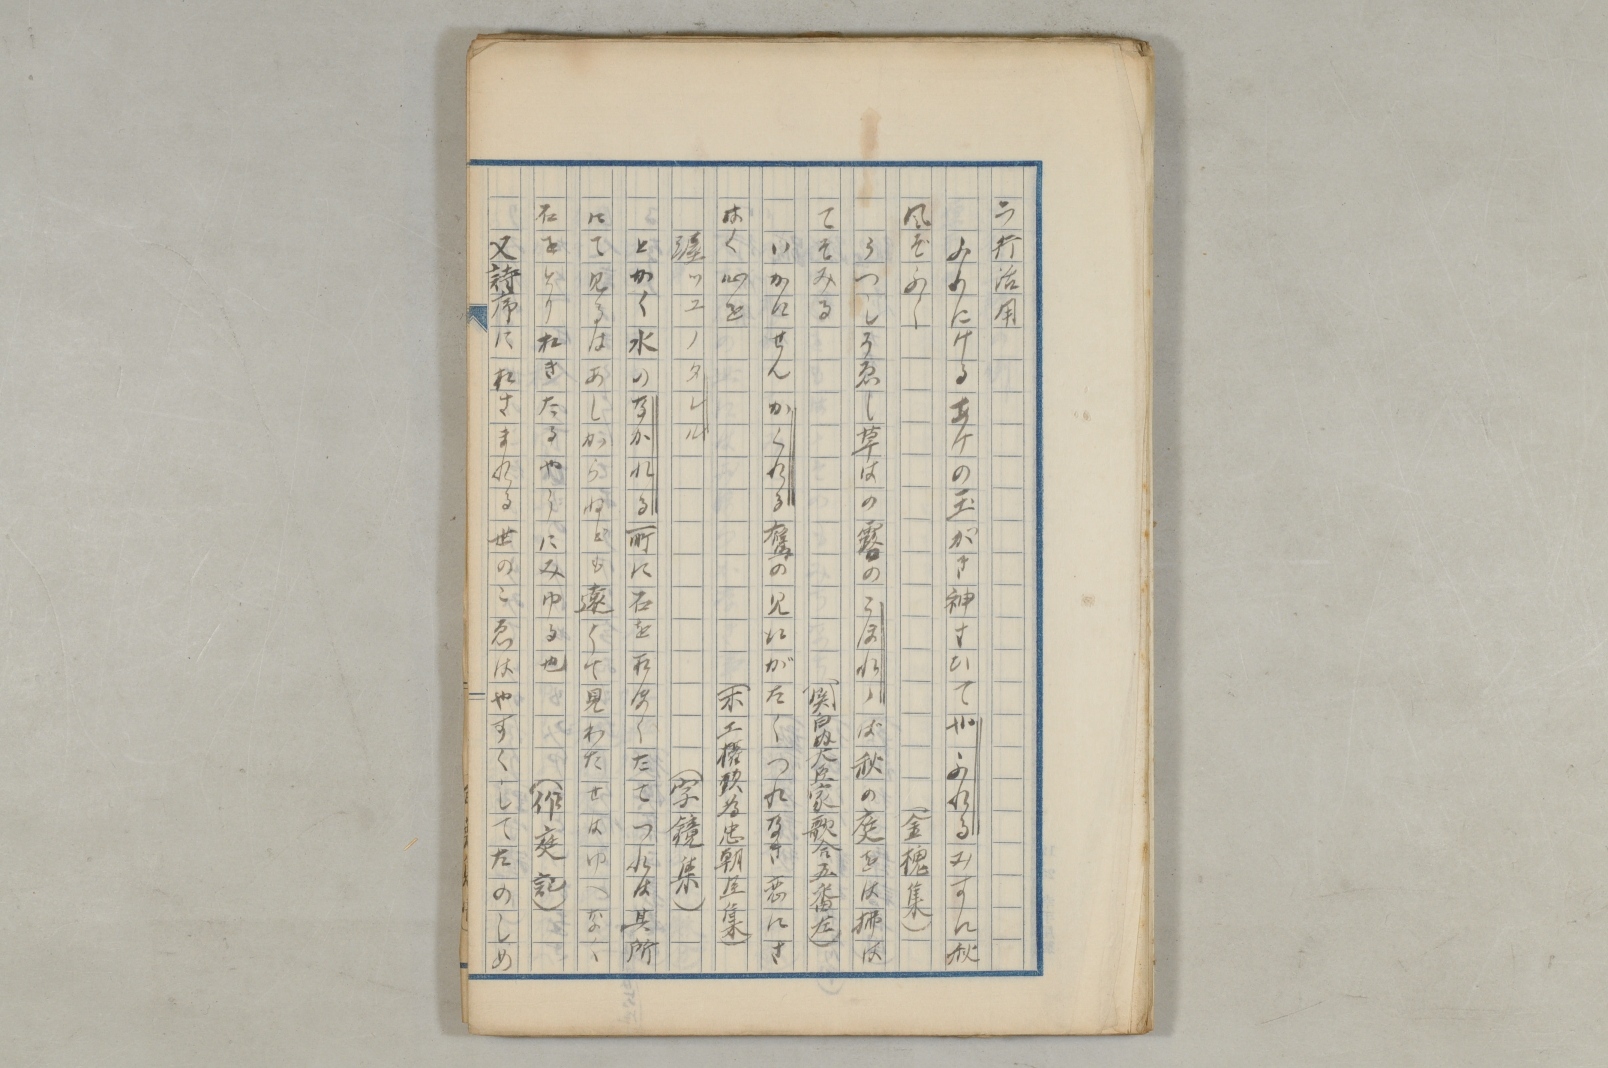 ラ行活用
みりにけるあけの玉がき神さひてやふれるみすに秋
風ぞふく
うつしうゑし草はの露のこぼれゝば秋の庭をは掃は
てそみる
(関白内大臣家歌合五番左)
いかにせんかくれる鷲の見にがたくつれなき恋にさ
はく心を
(木工権頭為忠朝臣集)
ツエノタレル
(字鏡集)
とかく水のなかれる所に石をおほくたてつれは其所
にて見るはあしからねとも遠くて見わたせはゆへなく
石をとりおきたるやうにみゆる也
(作庭記)
又詩序におさまれる世のこゑはやすくしてたのしめ
(金槐集)